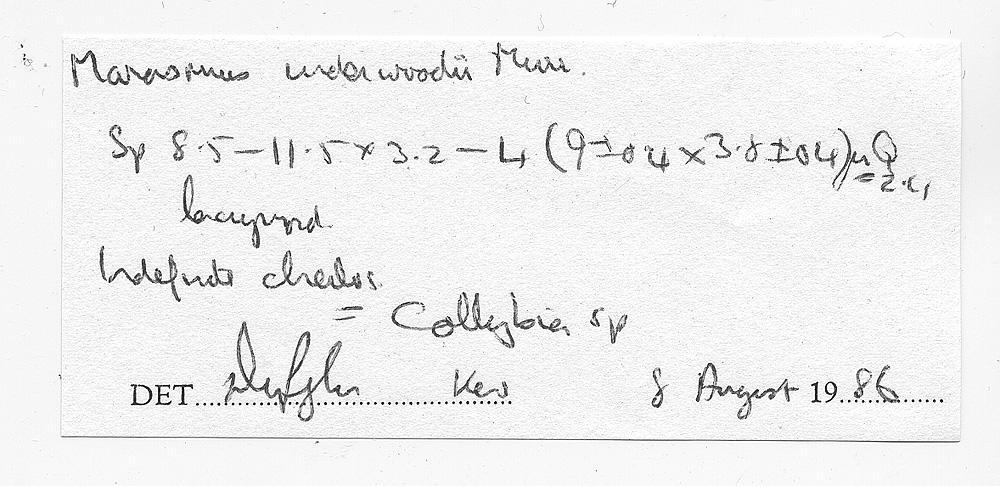 Marasmius underwoodii Murr.
Sp 8.5–11.5 × 3.2–4 (9±04 × 3.8±04)µ Q = 2.4
lacrymoid
Indefinite cheilos.
= Collybia sp
DET. Kew 8 August 1986